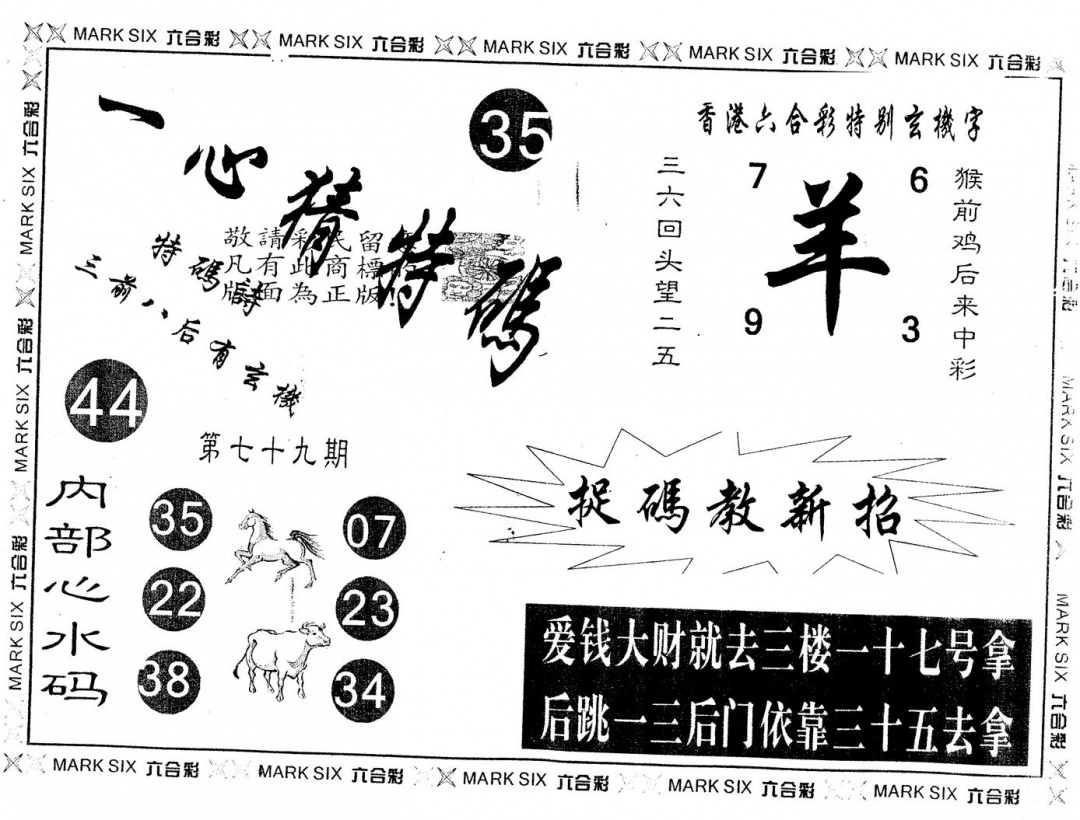 MARK SIX 六合彩 MARK SIX 六合彩 MARK SIX 六合彩 MARK SIX 六合彩 MARK SIX 六合彩
一心猜特碼
35
敬請彩民留
凡有此商標
版面為正版!
特碼詩
三前八后有玄機
44
第七十九期
内部心水码
35
22
38
07
23
34
香港六合彩特别玄機字
三六回头望二五
7
6
羊
9
3
猴前鸡后来中彩
捉碼教新招
爱钱大财就去三楼一十七号拿
后跳一三后门依靠三十五去拿
MARK SIX 六合彩 MARK SIX 六合彩 MARK SIX 六合彩
MARK SIX 六合彩 MARK SIX 六合彩
MARK SIX 六合彩 MARK SIX 六合彩 MARK SIX 六合彩 MARK SIX 六合彩 MARK SIX 六合彩